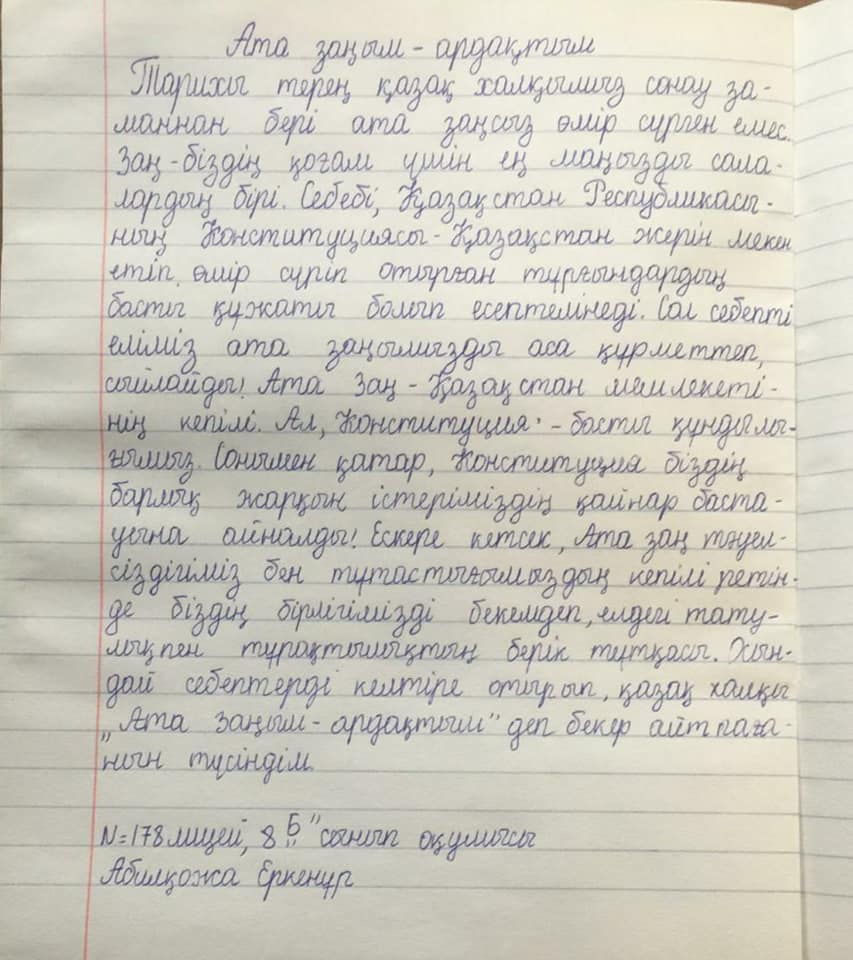 Ата заңым - ардақтым
Тарихы терең қазақ халқымыз сонау за-
маннан бері ата заңсыз өмір сүрген емес.
Заң - біздің қоғам үшін ең маңызды сала-
лардың бірі. Себебі, Қазақстан Республикасы-
ның Конституциясы - Қазақстан жерін мекен
етіп, өмір сүріп отырған тұрғындардың
басты құжаты болып есептелінеді. Сол себепті
еліміз ата заңымызды аса құрметтеп,
сыйлайды! Ата Заң - Қазақстан мемлекеті-
нің кепілі. Ал, Конституция - басты құндылы-
ғымыз. Сонымен қатар, Конституция біздің
барлық жарқын істеріміздің қайнар баста-
уына айналды! Ескере кетсек, Ата заң тәуел-
сіздігіміз бен тұтастығымыздың кепілі ретін-
де біздің бірлігімізді бекемдеп, елдегі тату-
лық пен тұрақтылықтың берік тұтқасы. Осын-
дай себептерді келтіре отырып, қазақ халқы
„Ата Заңым - ардақтым" деп бекер айтпаға-
нын түсіндім.
N=178 лицей, 8 „Б" сынып оқушысы
Абилқожа Еркенұр